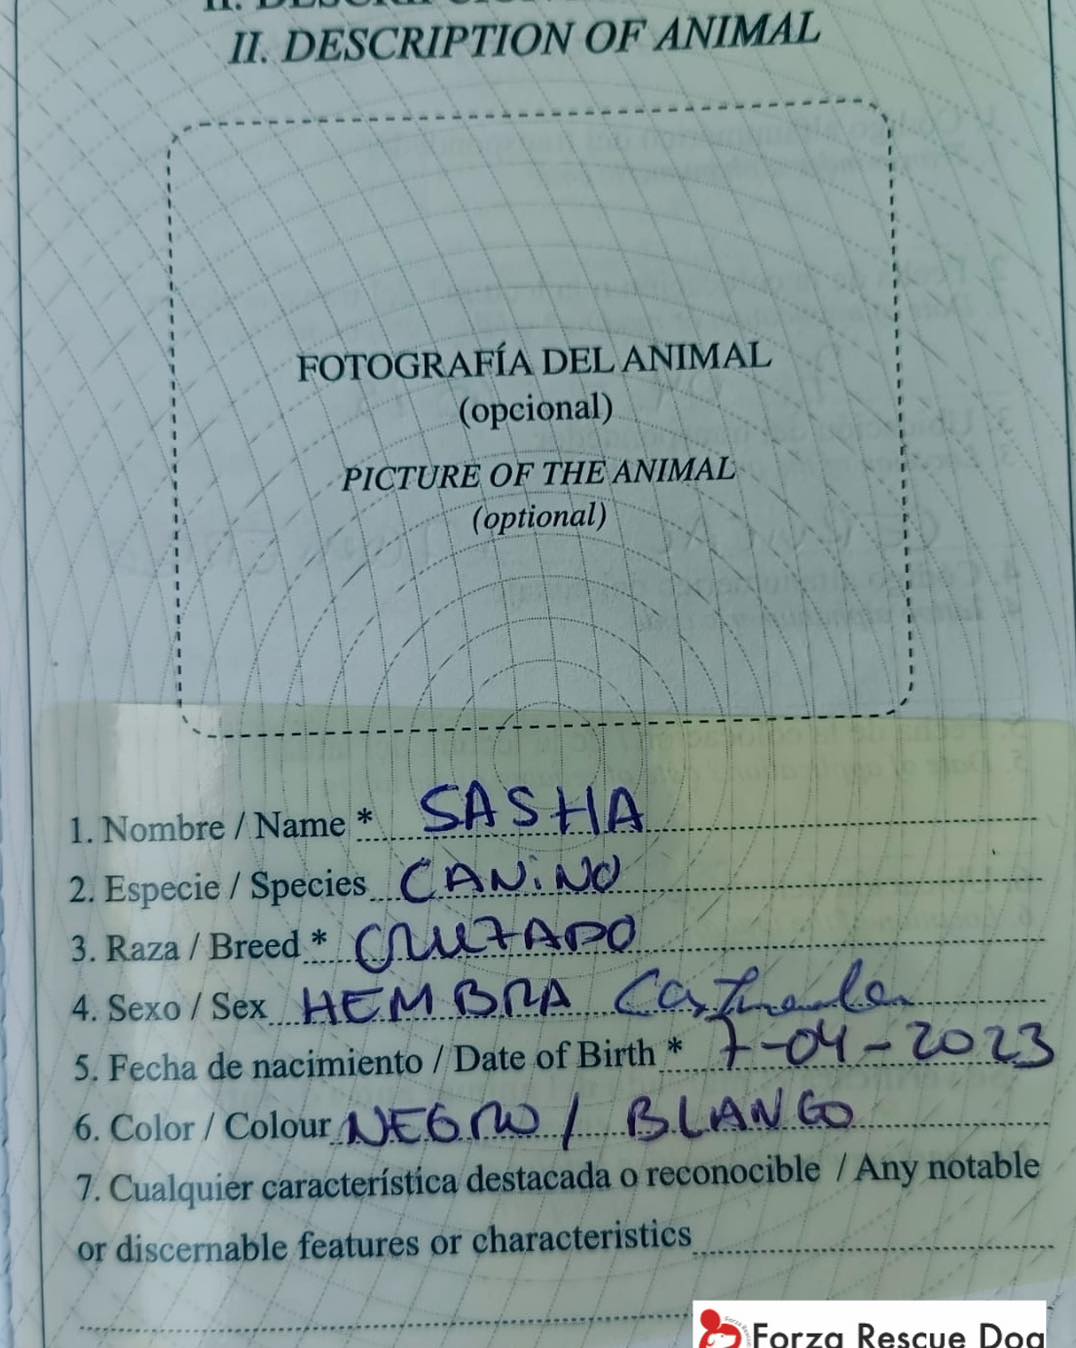 II. DESCRIPTION OF ANIMAL
FOTOGRAFÍA DEL ANIMAL
(opcional)
PICTURE OF THE ANIMAL
(optional)
1. Nombre / Name * SASHA
2. Especie / Species CANiNO
3. Raza / Breed * CRUZADO
4. Sexo / Sex HEMBRA Castrada
5. Fecha de nacimiento / Date of Birth * 7-04-2023
6. Color / Colour NEGRO / BLANCO
7. Cualquier característica destacada o reconocible / Any notable
or discernable features or characteristics
Forza Rescue Dog